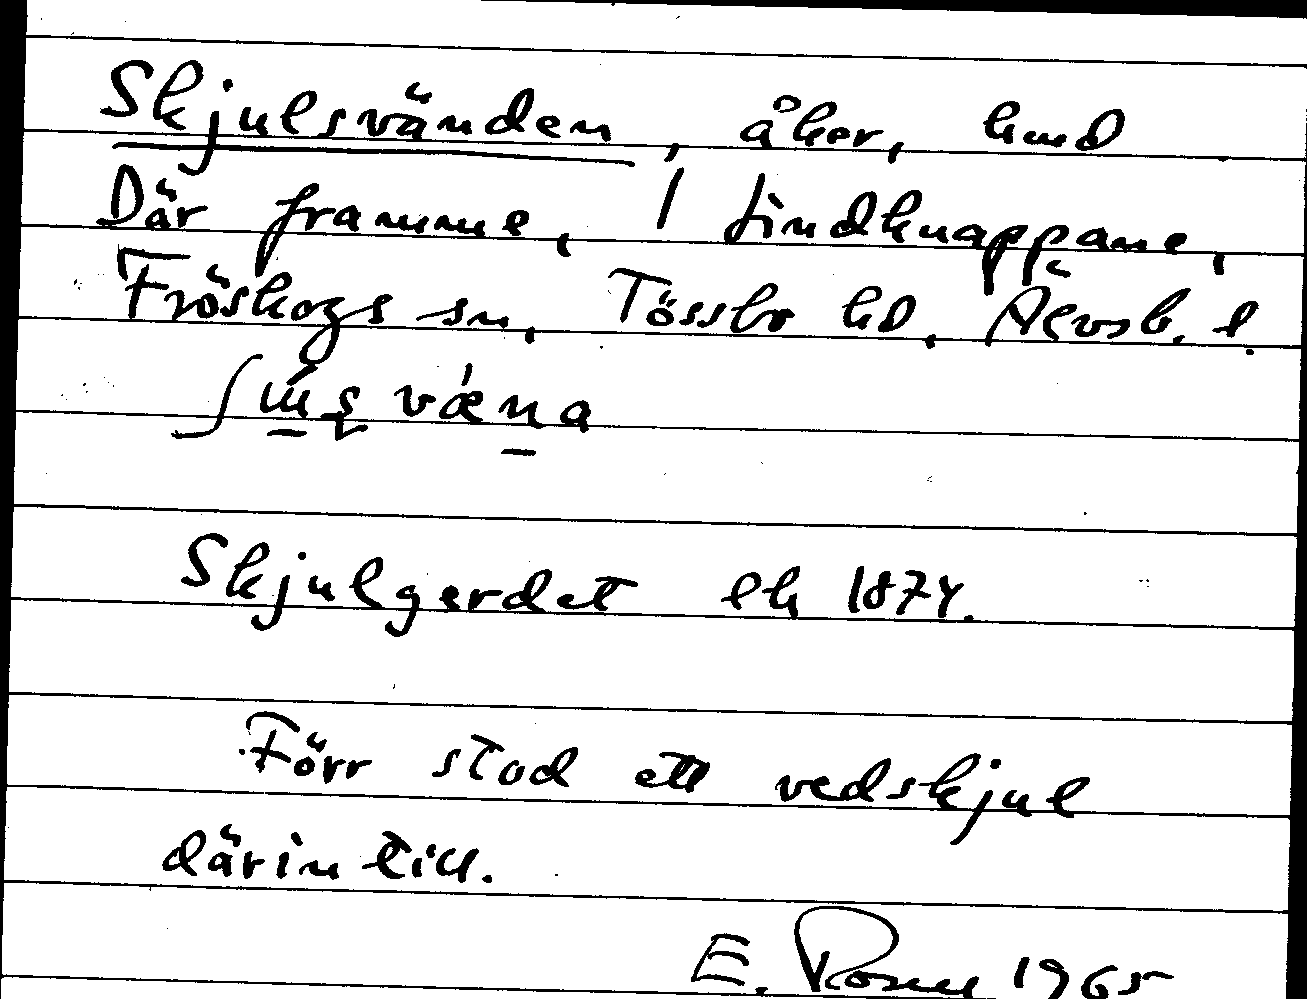 Skjulsvänden, åker, hmd
Där framme, 1 Lindknappane,
Fröskogs sn, Tössbo hd, Älvsb. l.
Skjulgerdet ek 1874.
Förr stod ett vedskjul
därintill.
E. Ronn 1965